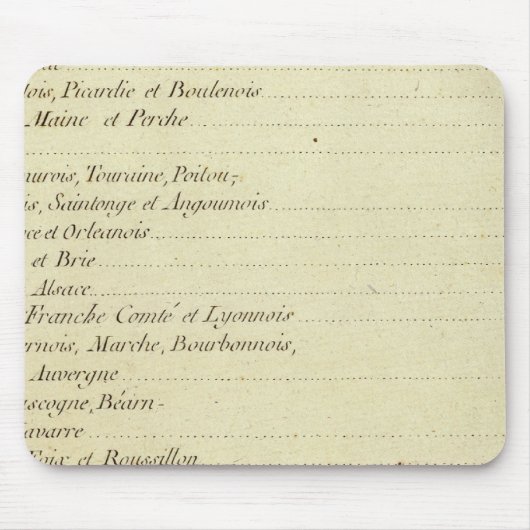 lois, Picardie et Boulenois
Maine et Perche
murois, Touraine, Poitou,
is, Saintonge et Angoumois
ce et Orleanois
et Brie
Alsace
Franche Comté et Lyonnois
ernois, Marche, Bourbonnois,
Auvergne
uscogne, Béarn
avarre
Foix et Roussillon